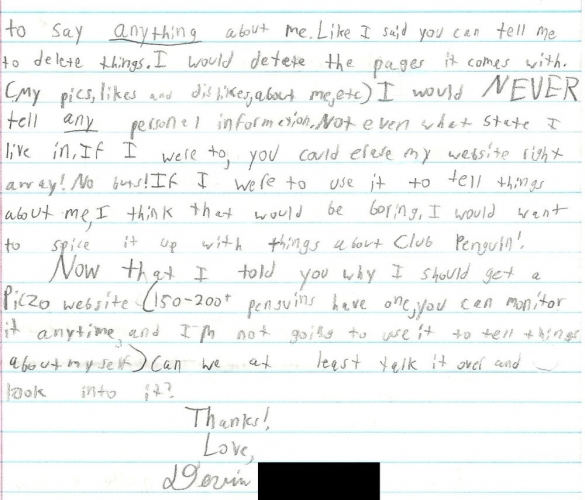 to say anything about me. Like I said you can tell me
to delete things. I would detete the pages it comes with.
(My pics, likes and dislikes, about me, etc) I would NEVER
tell any personal information. Not even what state I
live in. If I were to, you could erase my website right
array! No buts! If I were to use it to tell things
about me, I think that would be boring. I would want
to spice it up with things about Club Penguin!
Now that I told you why I should get a
Piczo website (150-200+ penguins have one, you can monitor
it anytime, and I'm not going to use it to tell things
about myself) Can we at least talk it over and
look into it?
Thanks!
Love,
Devin